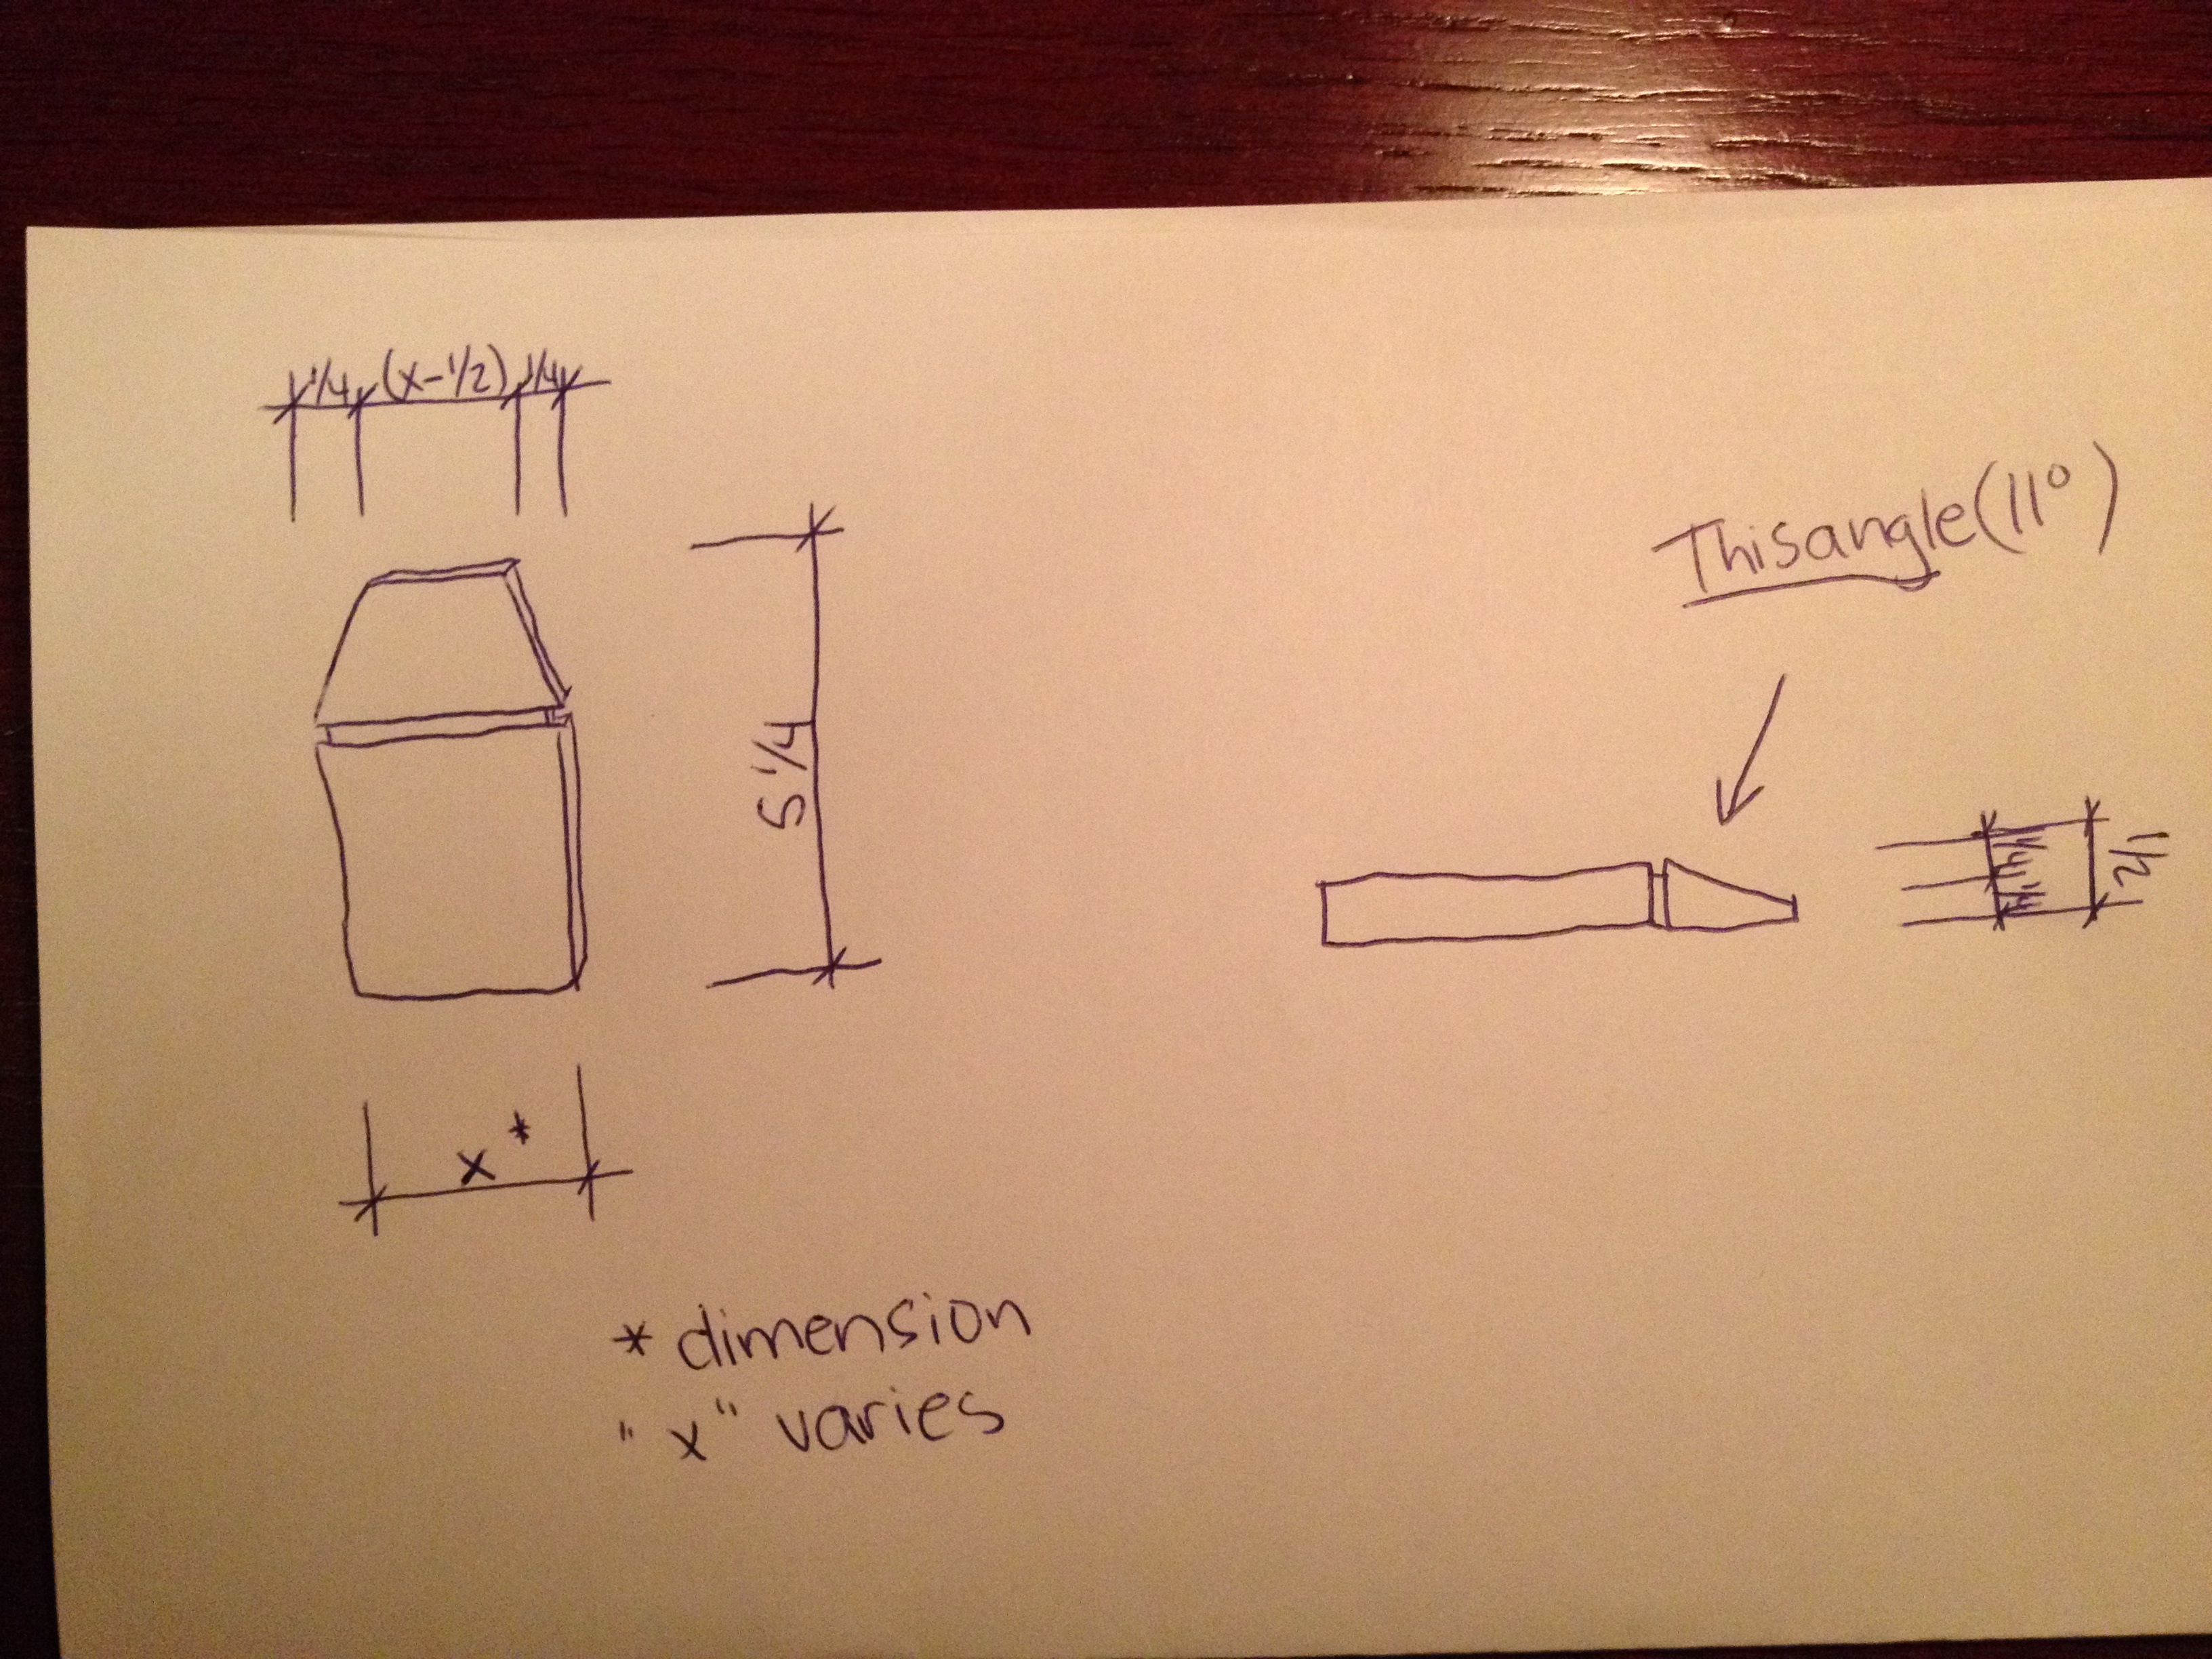 1/4 (x-1/2) 1/4
Thisangle(11°)
5 1/4
1/2
x *
* dimension
"x" varies